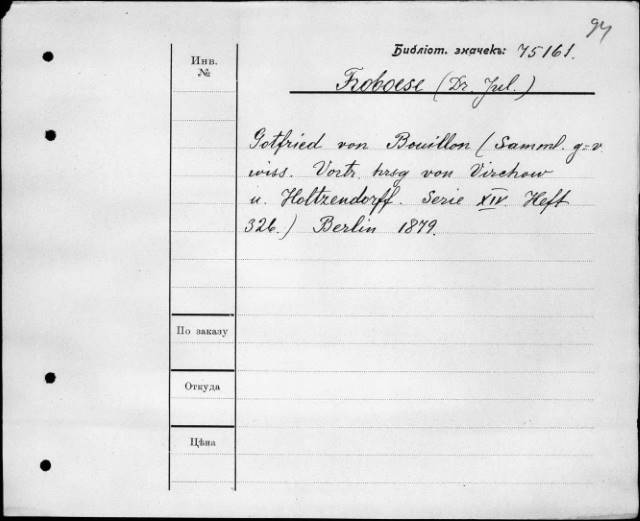 94
Библіот. значекъ: 75161.
Инв.
№
Froboese (Dr. Jul.)
Gotfried von Bouillon (Samml. g=v.
wiss. Vortr. hrsg von Virchow
u. Holtzendorff. Serie XIV. Heft
326.) Berlin 1879.
По заказу
Откуда
Цѣна